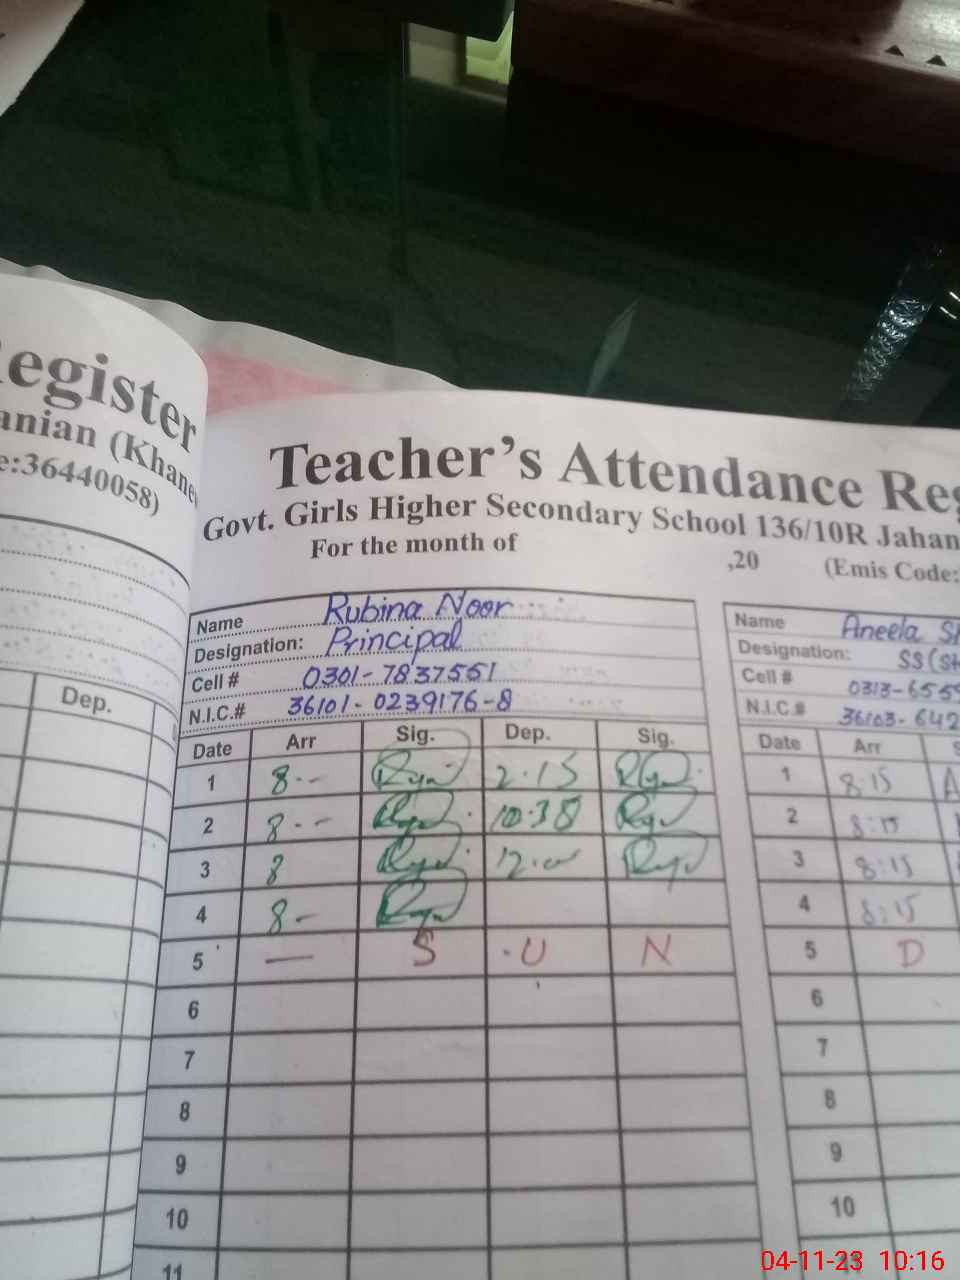 egister
anian (Khane
e:36440058)
Dep.
Teacher's Attendance Reg
Govt. Girls Higher Secondary School 136/10R Jahan
For the month of ,20 (Emis Code:
Name Rubina Noor
Designation: Principal
Cell # 0301-7837551
N.I.C.# 36101-0239176-8
Date Arr Sig. Dep. Sig.
1 8-- 2.15
2 8-- 10.38
3 8 12.00
4 8-
5 — S .U N
6
7
8
9
10
11
Name Aneela Sh
Designation: SS(
Cell # 0313-655
N.I.C.# 36103-642
Date Arr S
1 8:15
2 8:15
3 8:15
4 8:15
5 D
6
7
8
9
10
11
04-11-23 10:16